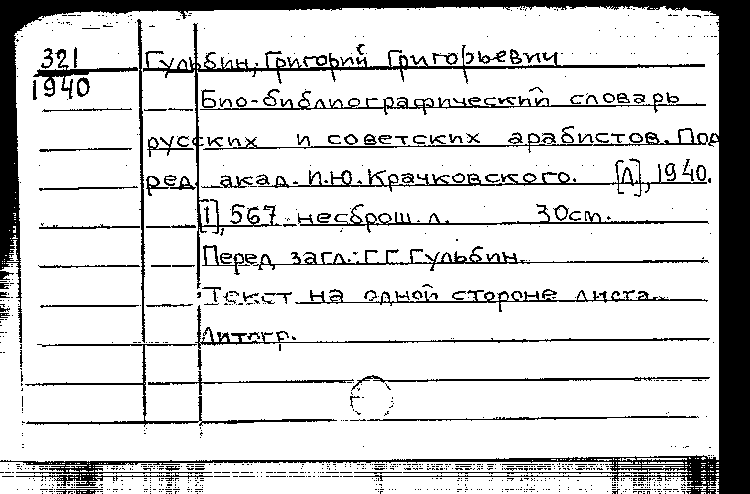 321
1940
Гульбин, Григорий Григорьевич
Био-библиографический словарь
русских и советских арабистов. Под
ред. акад. И.Ю. Крачковского. [Л.], 1940.
[1], 567 несброш. л. 30 cm.
Перед загл.: Г.Г. Гульбин.
Текст на одной стороне листа.
Литогр.